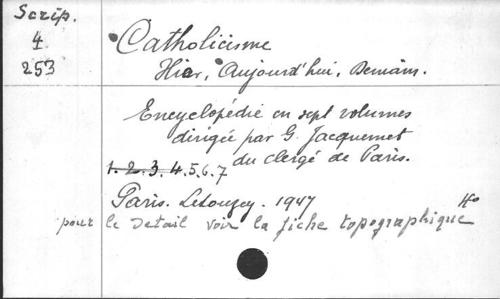 Scrip.
4
253
Catholicisme
Hier, Aujourd'hui, Demain.
Encyclopédie en sept volumes
dirigée par G. Jacquemet
du clergé de Paris.
1. 2. 3. 4. 5. 6. 7
Paris. Letouzey. 1947
4o
pour le detail voir la fiche topographique